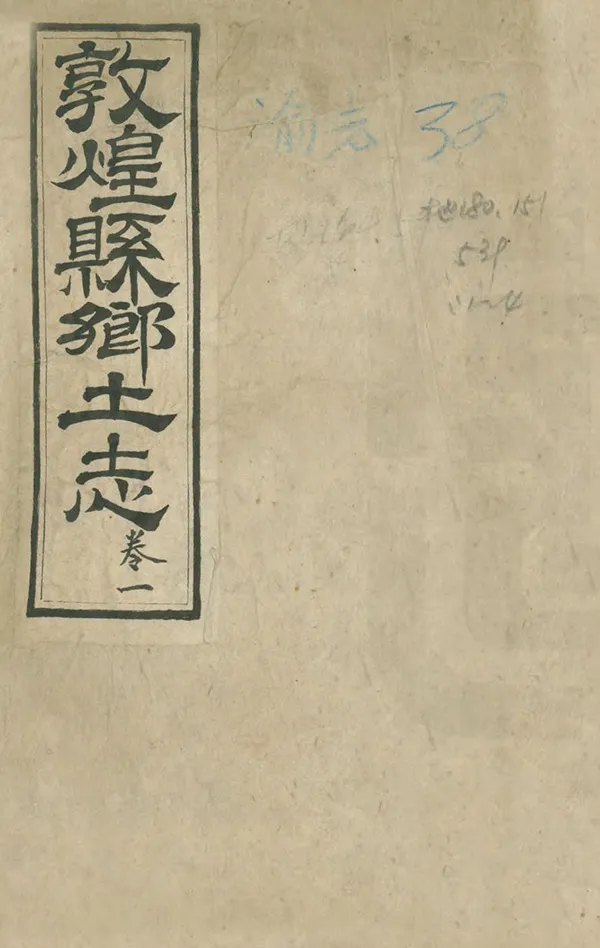 敦煌縣鄉土志
卷一
38
地180.151
539